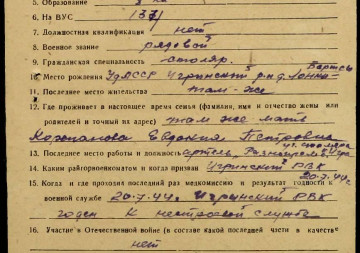 5. Образование 3 кл
6. На ВУС 133/1
7. Должностная квалификация нет
8. Военное звание рядовой
9. Гражданская специальность столяр.
10. Место рождения УдАССР Игринский р-н д. Лонки-Ворцы
11. Последнее место жительства там-же
12. Где проживает в настоящее время семья (фамилия, имя и отчество жены или
родителей и точный их адрес) там же мать
Евдокия Петровна
13. Последнее место работы и должность артель
14. Каким райгорвоенкоматом и когда призван Игринский РВК
20-7-44г.
15. Когда и где проходил последний раз медкомиссию и результат годности к
военной службе 20-7-44г. Игринский РВК
годен к нестроевой службе
16. Участие в Отечественной войне (в составе какой последней части в качестве
нет